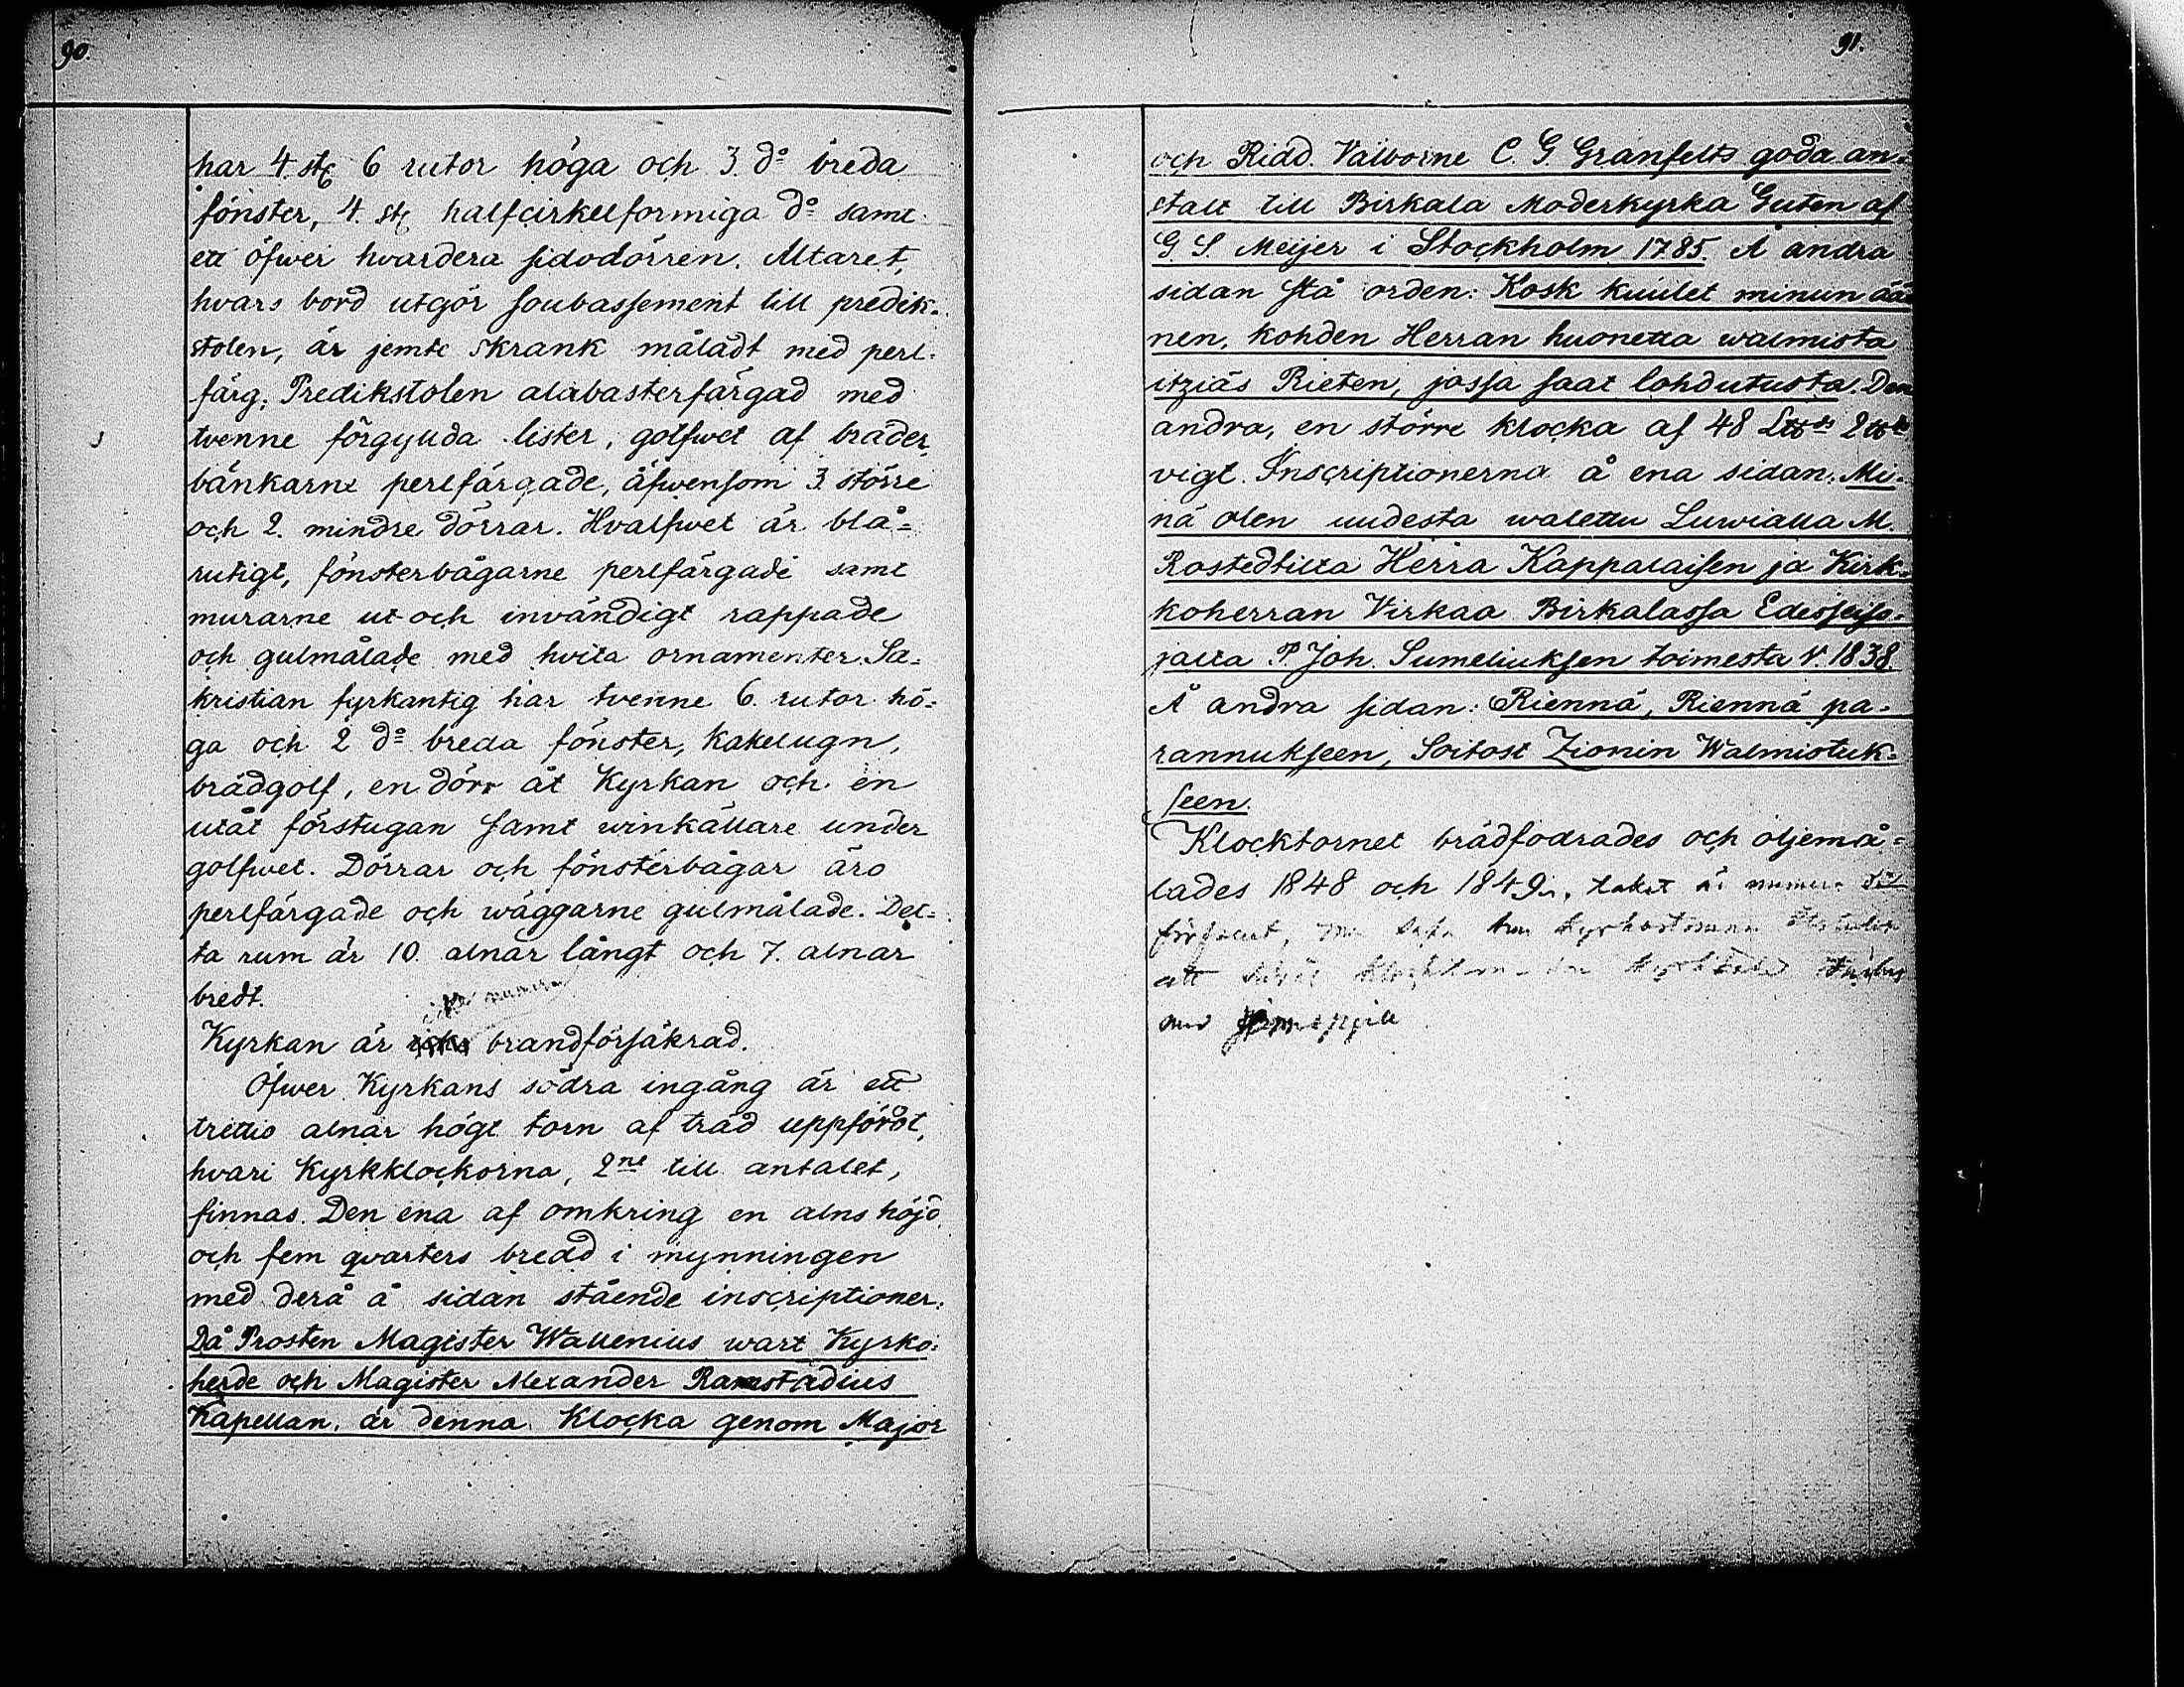 90.
har 4. st. 6 rutor höga och 3. d:o breda
fönster, 4. st. halfcirkelformiga d:o samt
ett öfwer hvardera sidodörren. Altaret,
hvars bord utgör soubassement till predik-
stolen, är jemte skrank måladt med perl-
färg. Predikstolen alabasterfärgad med
tvenne förgyllda lister, golfwet af bräder,
bänkarne perlfärgade, äfwensom 3 större
och 2. mindre dörrar. Hvalfwet är blå=
rutigt, fönsterbågarne perlfärgade samt
murarne ut och invändigt rappade
och gulmålade med hvita ornamenter. Sa=
kristian fyrkantig har tvenne 6. rutor hö=
ga och 2 d:o breda fönster, kakelugn,
brädgolf, en dörr åt Kyrkan och en
utåt förstugan samt winkällare under
golfwet. Dörrar och fönsterbågar äro
perlfärgade och wäggarne gulmålade. Det=
ta rum är 10. alnar långt och 7. alnar
bredt.
numera
Kyrkan är icke brandförsäkrad.
Öfwer Kyrkans södra ingång är ett
trettio alnar högt torn af träd uppfördt,
hvari Kyrkklockorna, 2ne till antalet,
finnas. Den ena af omkring en alns höjd
och fem qvarters bredd i mynningen
med derå å sidan stående inscriptioner:
Då Prosten Magister Wallenius wart Kyrko=
herde och Magister Alexander Ramstadius
Kapellan, är denna Klocka genom Major
91.
och Ridd. Välborne C. G. Granfelts goda an=
stalt till Birkala Moderkyrka Guten af
G. S. Meijer i Stockholm 1785. Å andra
sidan stå orden: Kosk kuulet minun ää
nen, kohden Herran huonetta walmista
itziäs Rieten, jossa saat lohdutusta. Den
andra, en större klocka af 48 L℔ds 2 ℔ds
vigt. Inscriptionerna å ena sidan: Mi-
nä olen uudesta walettu Luwialla M.
Rostedtilta Herra Kappalaisen ja Kirk-
koherran Virkaa Birkalassa Edesseiso-
jalta P. Joh. Sumeliuksen toimesta V. 1838.
Å andra sidan: Riennä, Riennä pa-
rannukseen, Soitost Zionin Walmistuk-
seen.
Klocktornet brädfodrades och oljemå=
lades 1848 och 1849, taket är numera
att
med